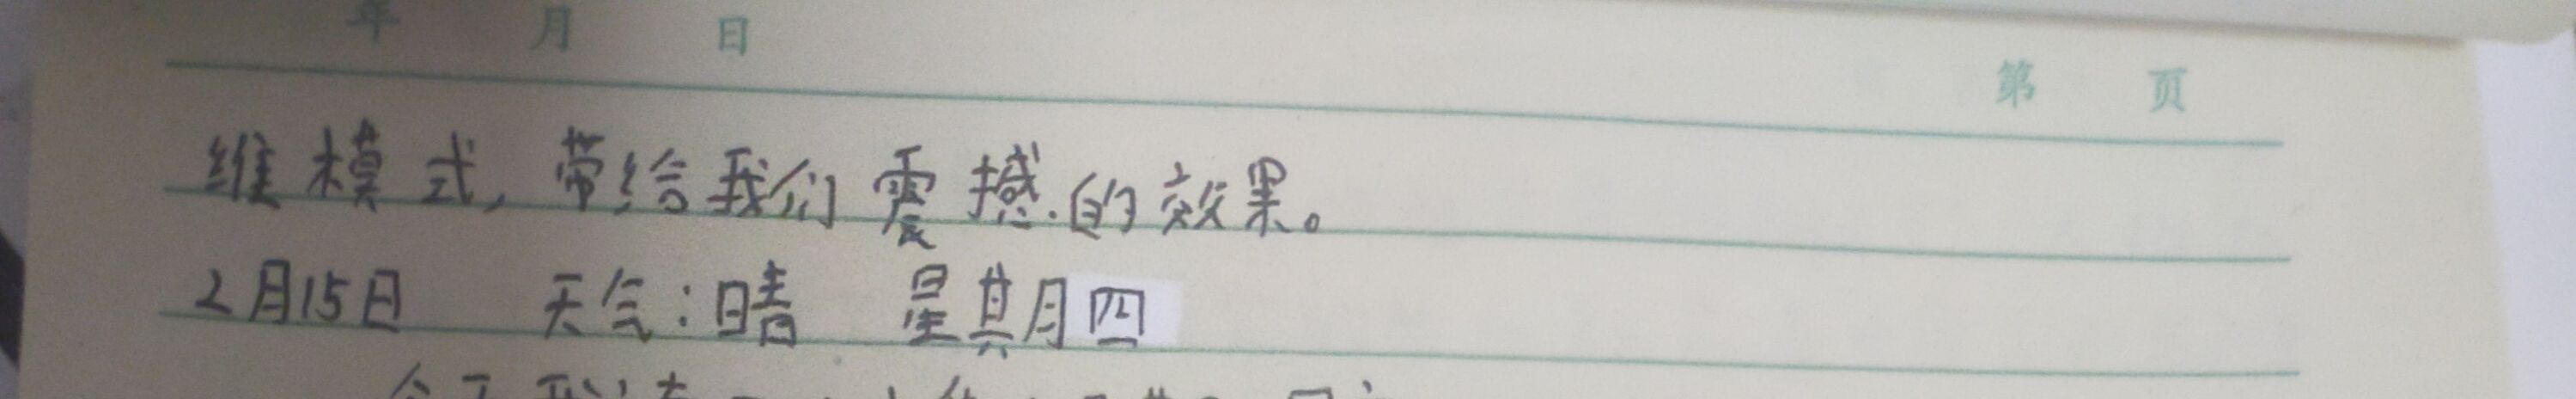 年 月 日
第 页
维模式，带给我们震撼的效果。
2月15日 天气：晴 星期四